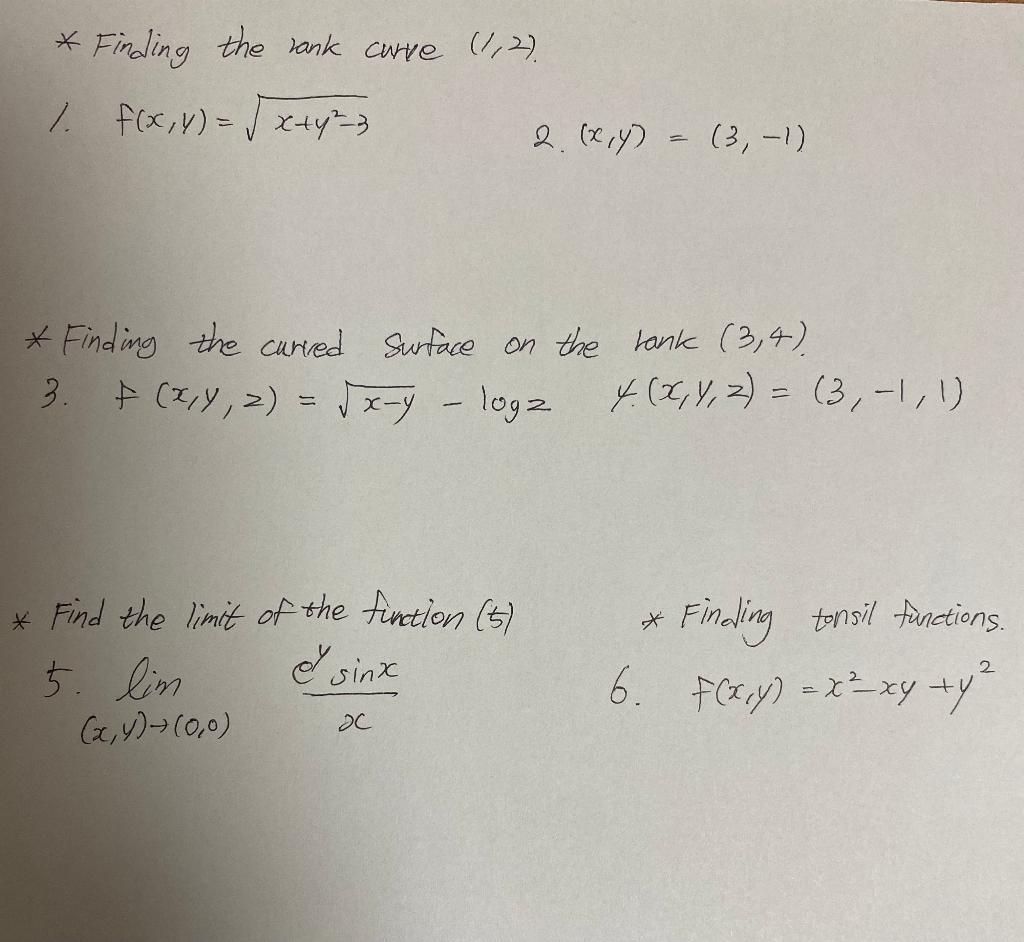 * Finding the rank curve (1,2).
1. f(x,y) = √x+y²-3 2. (x,y) = (3,-1)
* Finding the curved surface on the rank (3,4).
3. f(x,y,z) = √x-y - log z 4. (x,y,z) = (3,-1,1)
* Find the limit of the function (5) * Finding tonsil functions.
5. lim (x,y)→(0,0) e^y sinx / x 6. f(x,y) = x²-xy+y²